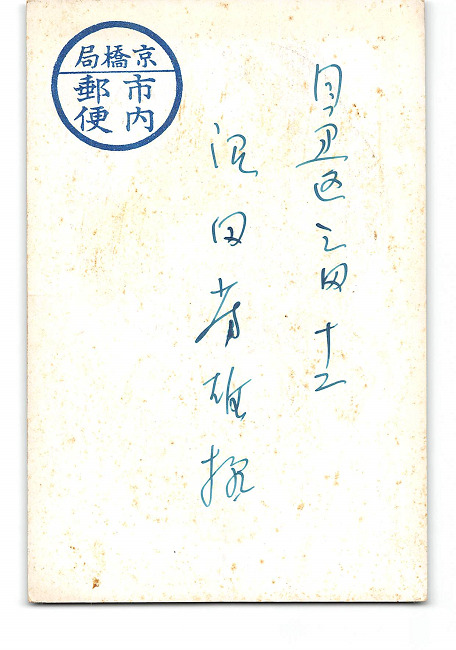 京橋局
市内
郵便
目黒区三田十二
田芳雄様